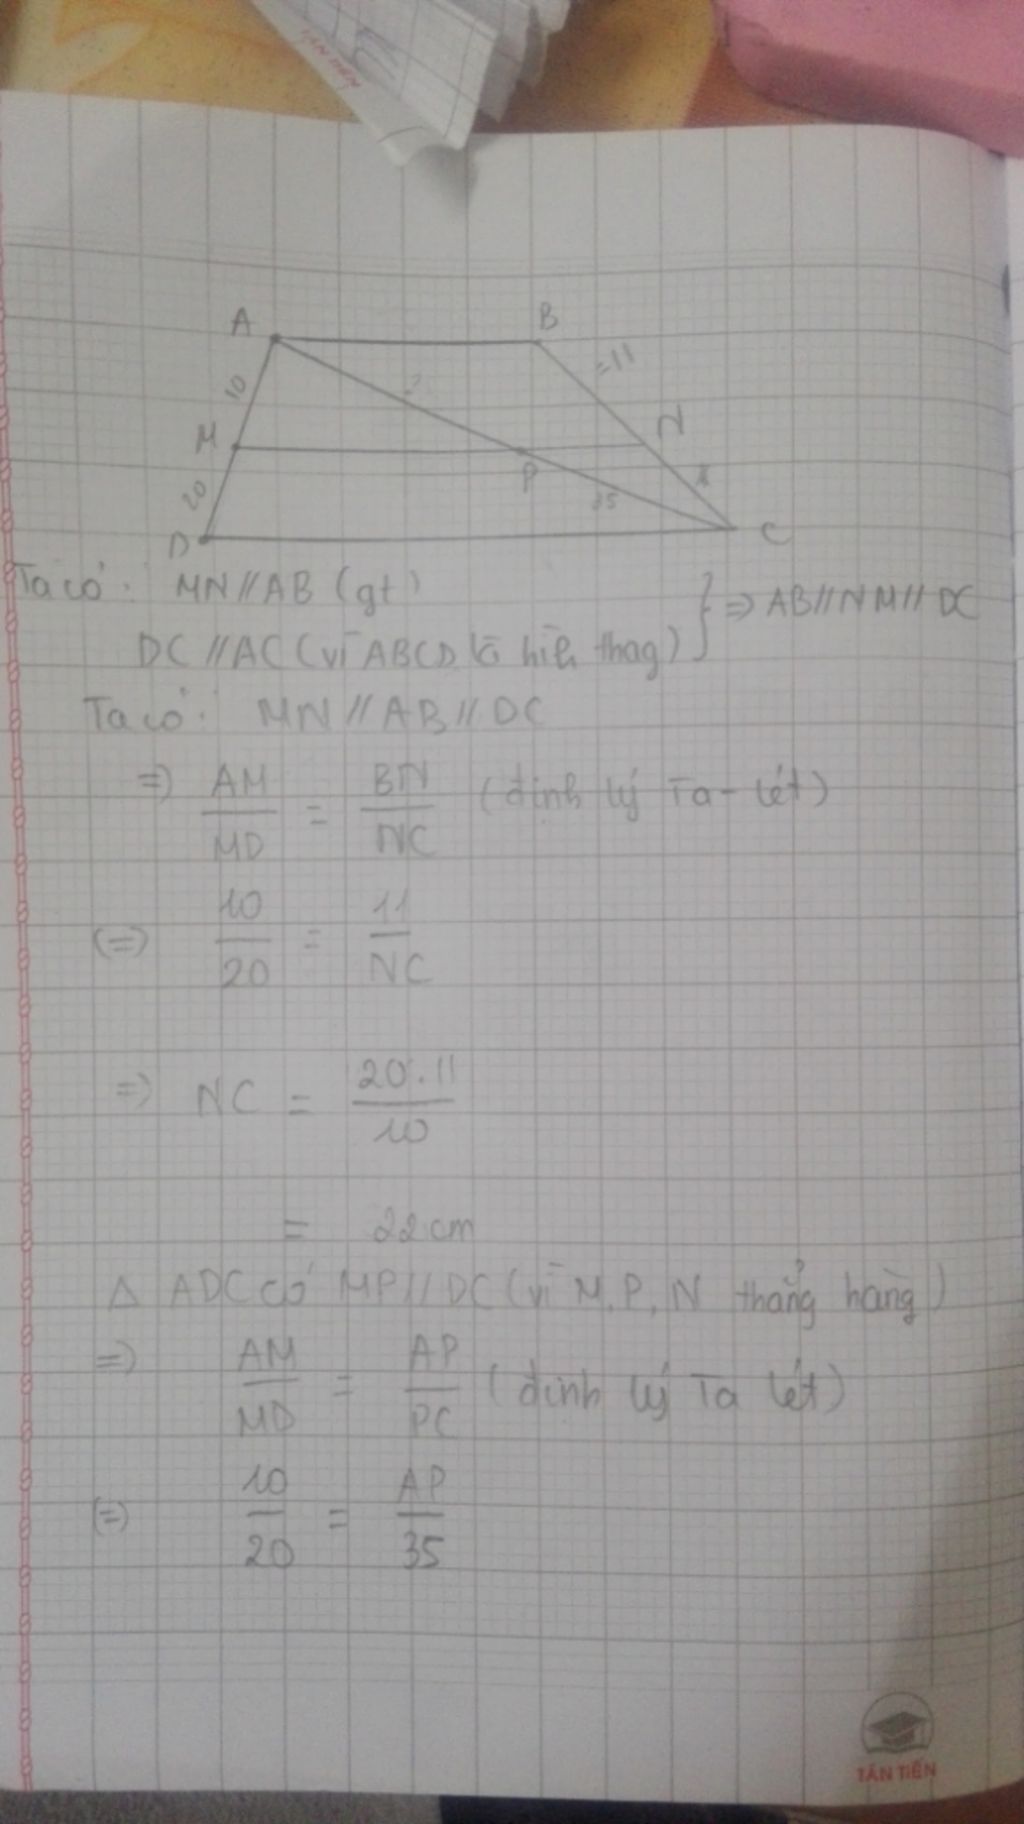 TÂN TIẾN
A
B
10
?
=11
M
N
20
P
35
x
D
C
Ta có: MN//AB (gt)
DC//AC (vì ABCD là hình thag) } => AB//NM//DC
Ta có: MN//AB//DC
=> AM/MD = BN/NC (định lý Ta-lét)
(=) 10/20 = 11/NC
=> NC = 20.11/10
= 22 cm
Δ ADC có MP//DC (vì M, P, N thẳng hàng)
=> AM/MD = AP/PC (định lý Ta lét)
(=) 10/20 = AP/35
TÂN TIẾN